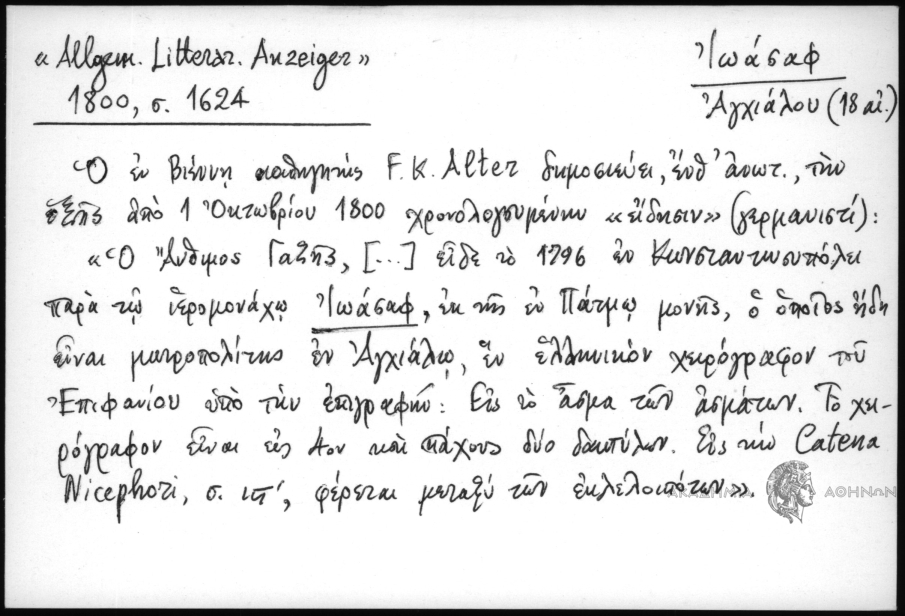 «Allgem. Litterar. Anzeiger»
1800, σ. 1624
Ἰωάσαφ
Ἀγχιάλου (18 αἰ.)
Ὁ ἐν Βιέννῃ καθηγητὴς F. K. Alter δημοσιεύει, ἔνθ' ἀνωτ., τὴν
ἑξῆς ἀπὸ 1 Ὀκτωβρίου 1800 χρονολογουμένην «εἴδησιν» (γερμανιστί):
«Ὁ Ἄνθιμος Γαζῆς, [...] εἶδε τὸ 1796 ἐν Κωνσταντινουπόλει
παρὰ τῷ ἱερομονάχῳ Ἰωάσαφ, ἐκ τῆς ἐν Πάτμῳ μονῆς, ὁ ὁποῖος ἤδη
εἶναι μητροπολίτης ἐν Ἀγχιάλῳ, ἓν ἑλληνικὸν χειρόγραφον τοῦ
Ἐπιφανίου ὑπὸ τὴν ἐπιγραφήν: Εἰς τὸ ᾆσμα τῶν ᾀσμάτων. Τὸ χει-
ρόγραφον εἶναι εἰς 4ον καὶ πάχους δύο δακτύλων. Εἰς τὴν Catena
Nicephori, σ. ιπ', φέρεται μεταξὺ τῶν ἐκλελοιπότων».
ΑΚΑΔΗΜΙΑ ΑΘΗΝΩΝ